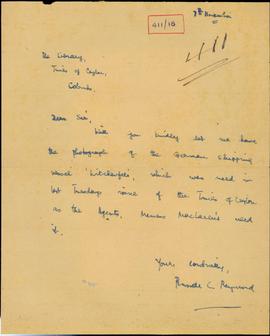 411/18
7th November
411
The Library,
Times of Ceylon,
Colombo.
Dear Sir,
Will you kindly let me have
the photograph of the German shipping
vessel which was used in
last Tuesdays issue of the Times of Ceylon
as the Agents, Messrs need
it.
Yours cordially,
C.